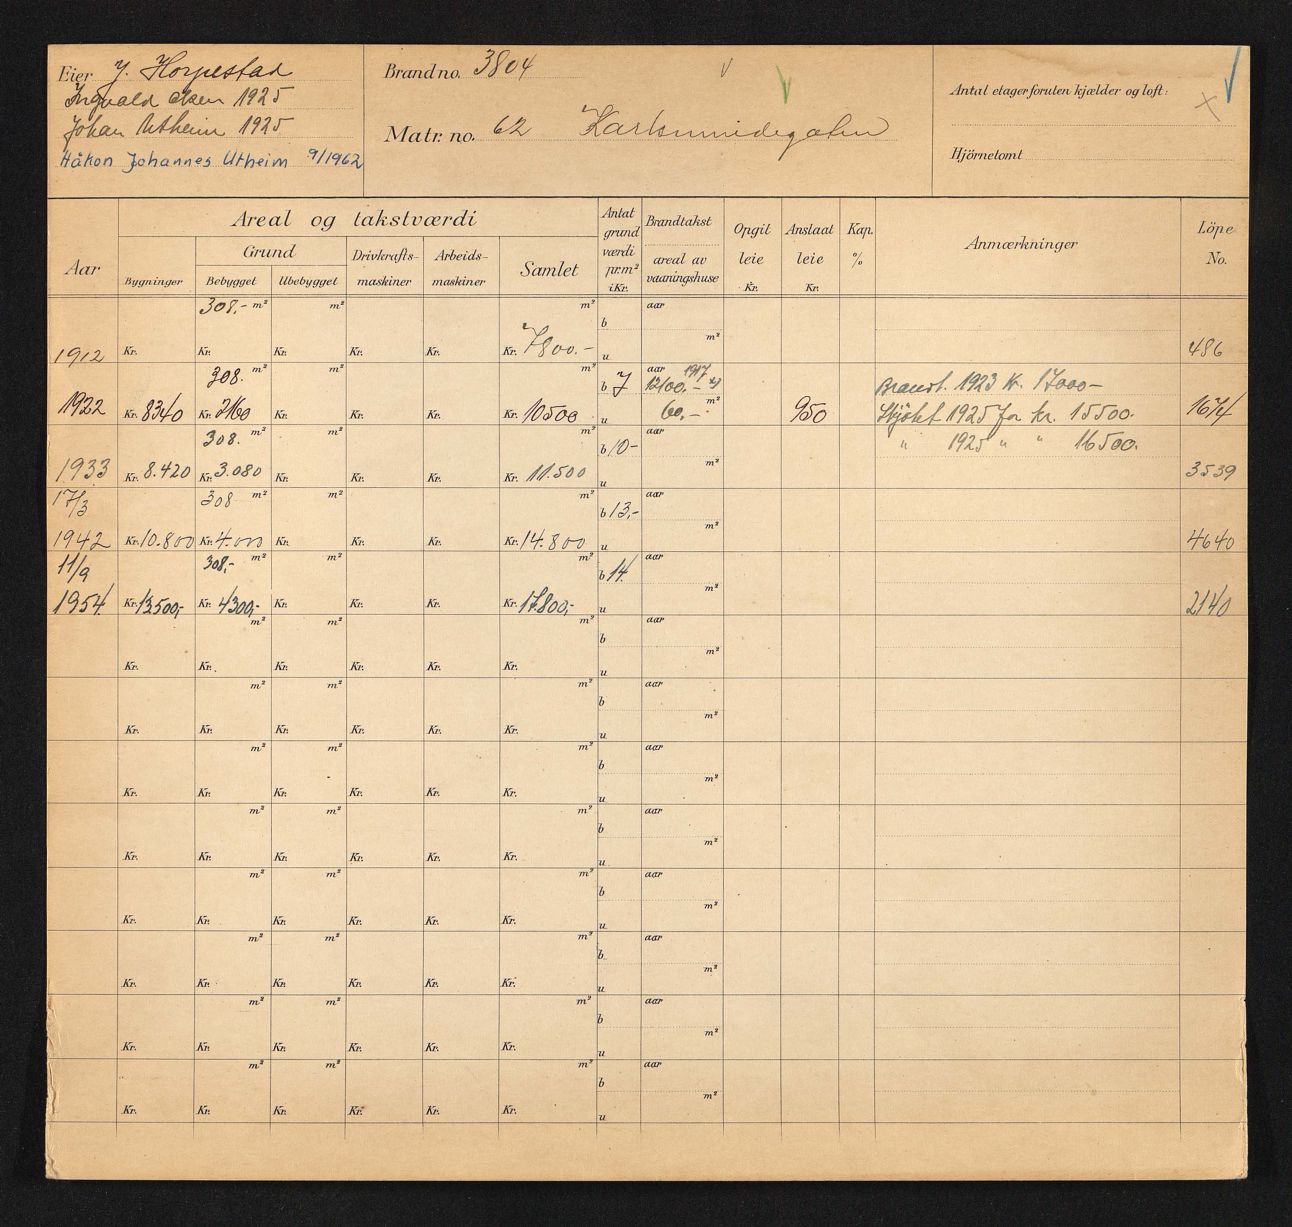 Eier J. Horpestad
Ingvald Olsen 1925
Johan Utheim 1925
Håkon Johannes Utheim 9/1962
Brand no. 3804
Matr. no. 62 Karlsminnegaten
Antal etager foruten kjælder og loft:
Hjörnetomt
Aar
Areal og takstværdi
Grund
Bygninger
Bebygget
Ubebygget
Drivkrafts-maskiner
Arbeids-maskiner
Samlet
Antat grund værdi pr. m² i Kr.
Brandtakst
areal av vaaningshuse
Opgit leie Kr.
Anslaat leie Kr.
Kap. %
Anmærkninger
Löpe No.
308,- m² m² m² b aar
1912 Kr. Kr. Kr. Kr. Kr. Kr. 7800.- u m² 486
308. m² m² m² b 7 aar 1917 12100,- Brandt. 1923 kr. 17000-
1922 Kr. 8340 Kr. 2160 Kr. Kr. Kr. Kr. 10500 u 60,- m² 950 Skjötet 1925 for kr. 15500. 1674
308. m² m² m² b 10- aar " 1925 " " 16500.
1933 Kr. 8.420 Kr. 3.080 Kr. Kr. Kr. Kr. 11.500 u m² 3539
17/3 308 m² m² m² b 13,- aar
1942 Kr. 10.800 Kr. 4.000 Kr. Kr. Kr. Kr. 14.800 u m² 4640
11/9 308,- m² m² m² b 14 aar
1954 Kr. 13500,- Kr. 4300,- Kr. Kr. Kr. Kr. 17.800,- u m² 2140
m² m² m² b aar
Kr. Kr. Kr. Kr. Kr. Kr. u m²
m² m² m² b aar
Kr. Kr. Kr. Kr. Kr. Kr. u m²
m² m² m² b aar
Kr. Kr. Kr. Kr. Kr. Kr. u m²
m² m² m² b aar
Kr. Kr. Kr. Kr. Kr. Kr. u m²
m² m² m² b aar
Kr. Kr. Kr. Kr. Kr. Kr. u m²
m² m² m² b aar
Kr. Kr. Kr. Kr. Kr. Kr. u m²
m² m² m² b aar
Kr. Kr. Kr. Kr. Kr. Kr. u m²
m² m² m² b aar
Kr. Kr. Kr. Kr. Kr. Kr. u m²